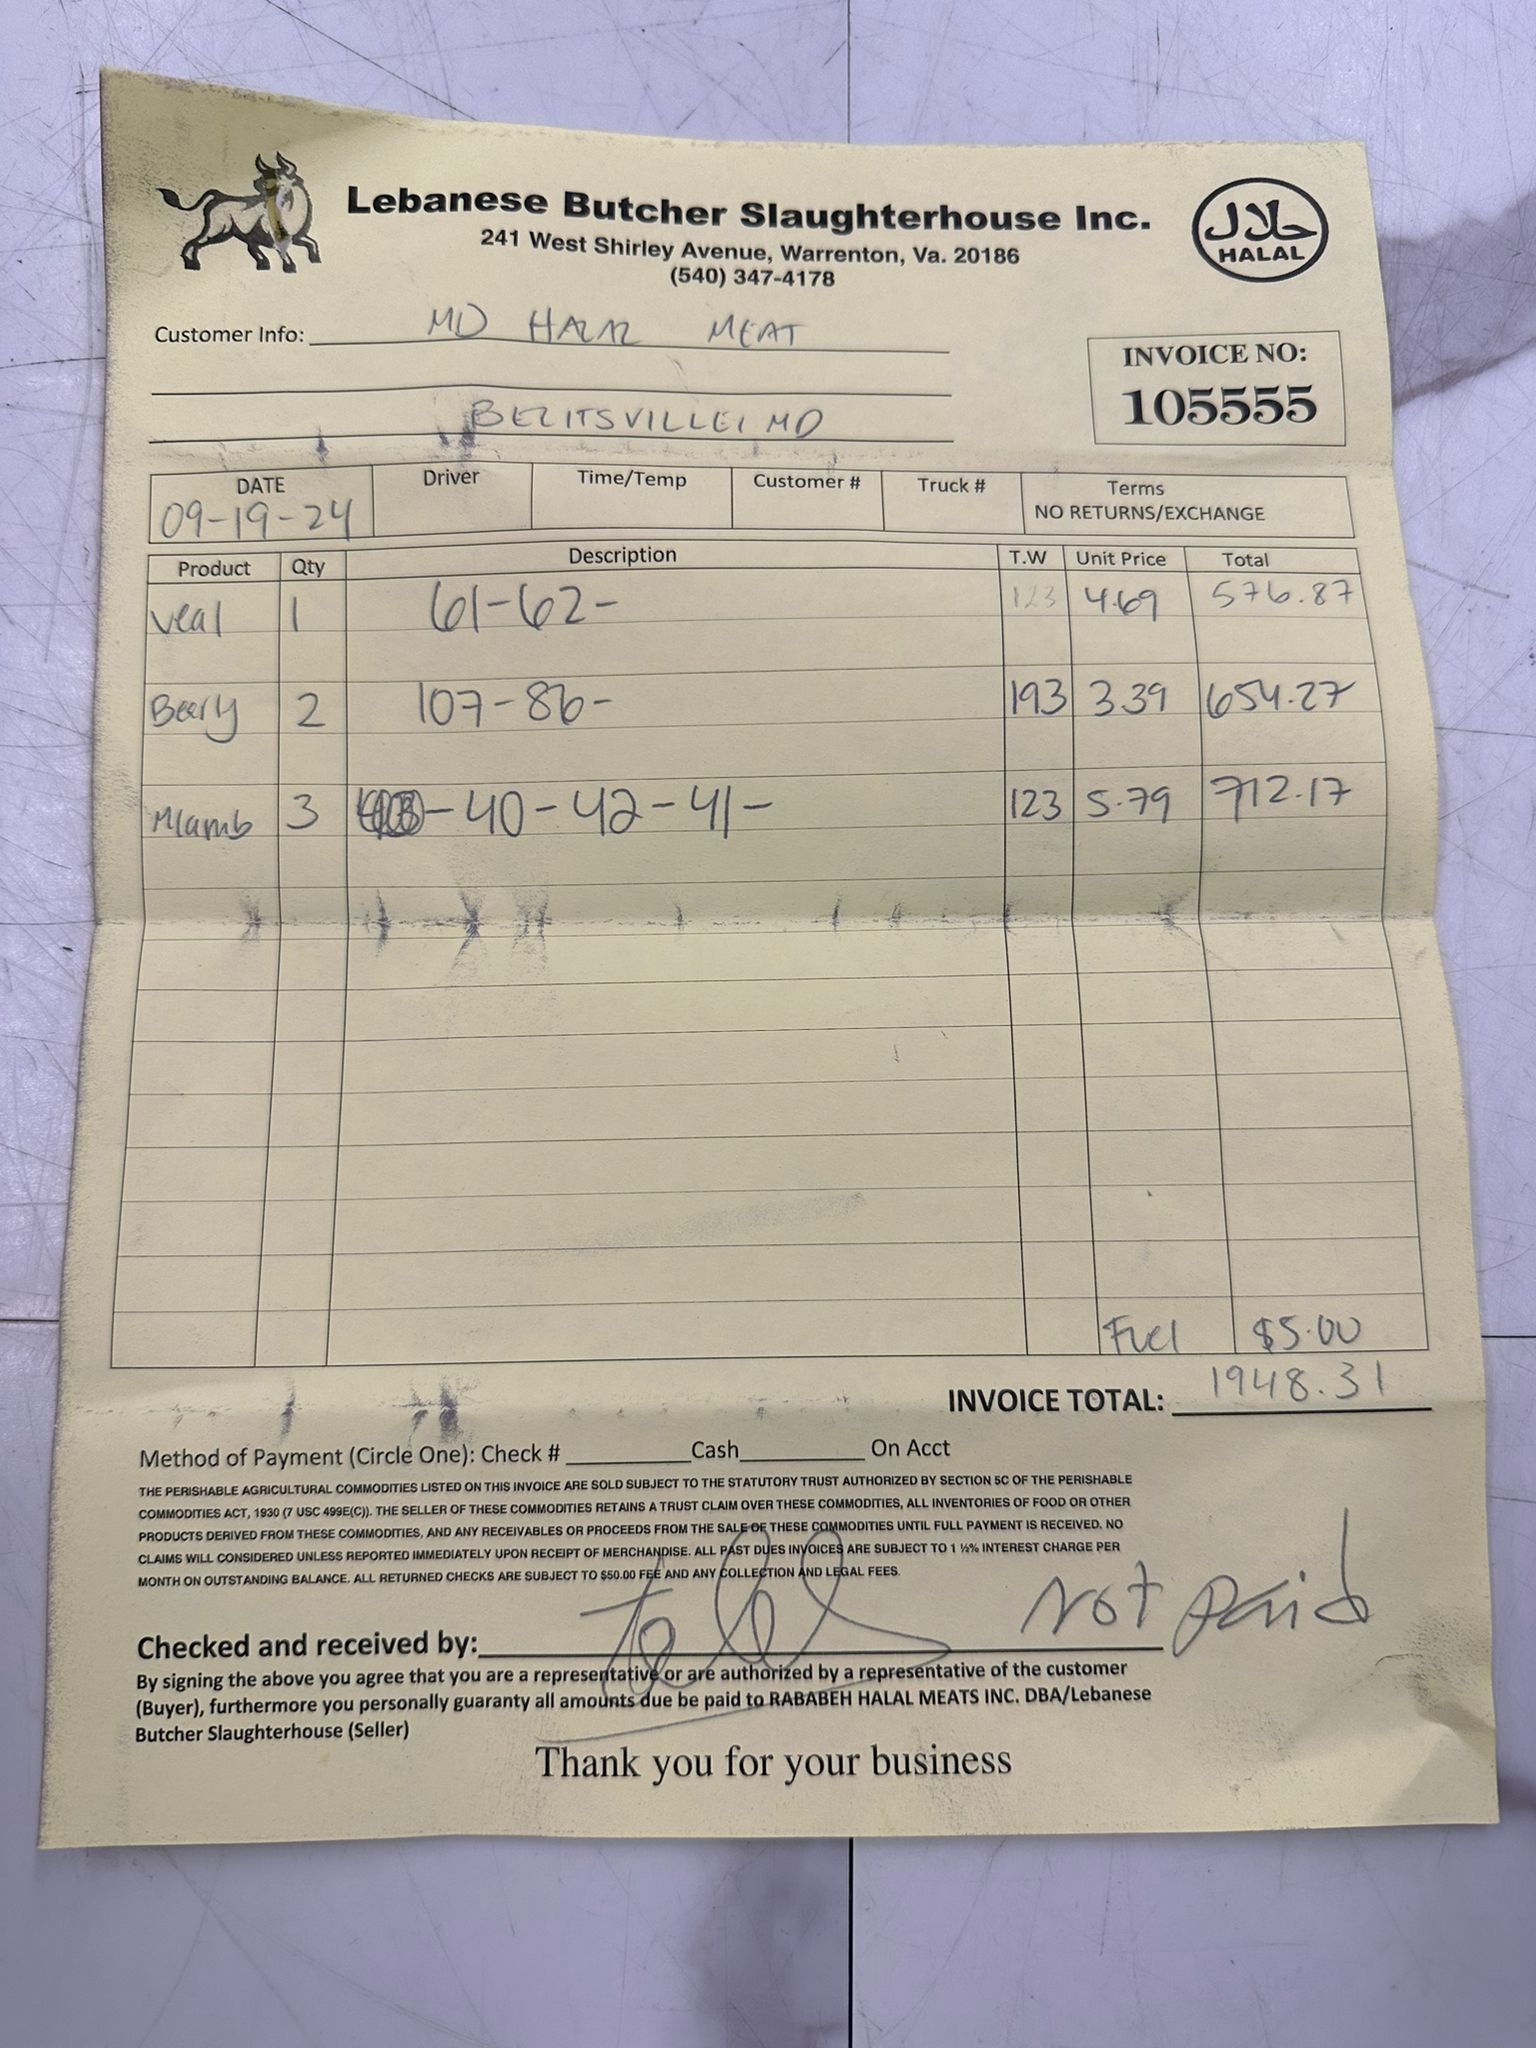 Lebanese Butcher Slaughterhouse Inc.
241 West Shirley Avenue, Warrenton, Va. 20186
(540) 347-4178
حلال
HALAL
Customer Info: MD HALAL MEAT
BELTSVILLE, MD
INVOICE NO:
105555
DATE Driver Time/Temp Customer # Truck # Terms
09-19-24 NO RETURNS/EXCHANGE
Product Qty Description T.W Unit Price Total
Veal 1 61-62- 123 4.69 576.87
2 107-86- 193 3.39 654.27
Mlamb 3 -40-42-41- 123 5.79 712.17
Fuel $5.00
INVOICE TOTAL: 1948.31
Method of Payment (Circle One): Check # Cash On Acct
THE PERISHABLE AGRICULTURAL COMMODITIES LISTED ON THIS INVOICE ARE SOLD SUBJECT TO THE STATUTORY TRUST AUTHORIZED BY SECTION 5C OF THE PERISHABLE
COMMODITIES ACT, 1930 (7 USC 499E(C)). THE SELLER OF THESE COMMODITIES RETAINS A TRUST CLAIM OVER THESE COMMODITIES, ALL INVENTORIES OF FOOD OR OTHER
PRODUCTS DERIVED FROM THESE COMMODITIES, AND ANY RECEIVABLES OR PROCEEDS FROM THE SALE OF THESE COMMODITIES UNTIL FULL PAYMENT IS RECEIVED. NO
CLAIMS WILL CONSIDERED UNLESS REPORTED IMMEDIATELY UPON RECEIPT OF MERCHANDISE. ALL PAST DUES INVOICES ARE SUBJECT TO 1 ½% INTEREST CHARGE PER
MONTH ON OUTSTANDING BALANCE. ALL RETURNED CHECKS ARE SUBJECT TO $50.00 FEE AND ANY COLLECTION AND LEGAL FEES.
Checked and received by: Not paid
By signing the above you agree that you are a representative or are authorized by a representative of the customer
(Buyer), furthermore you personally guaranty all amounts due be paid to RABABEH HALAL MEATS INC. DBA/Lebanese
Butcher Slaughterhouse (Seller)
Thank you for your business